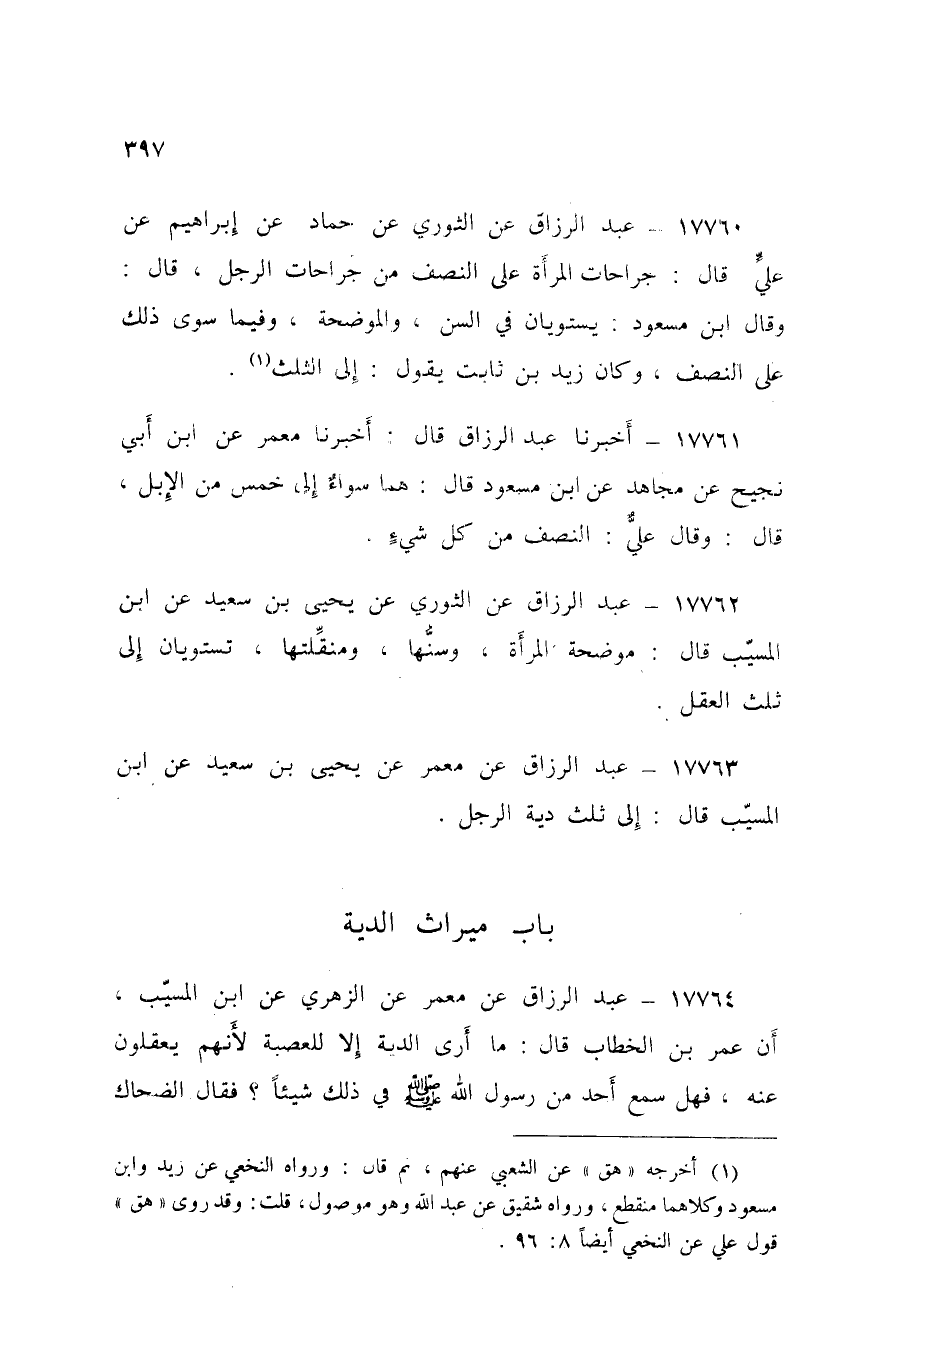 ٣٩٧
١٧٧٦٠ – عبد الرزاق عن الثوري عن حماد عن إبراهيم عن
عليٍّ قال : جراحات المرأة على النصف من جراحات الرجل ، قال :
وقال ابن مسعود : يستويان في السن ، والموضحة ، وفيما سوى ذلك
على النصف ، وكان زيد بن ثابت يقول : إلى الثلث(١) .
١٧٧٦١ – أخبرنا عبد الرزاق قال : أخبرنا معمر عن ابن أبي
نجيح عن مجاهد عن ابن مسعود قال : هما سواءٌ إلى خمس من الإبل ،
قال : وقال عليٌّ : النصف من كل شيءٍ .
١٧٧٦٢ – عبد الرزاق عن الثوري عن يحيى بن سعيد عن ابن
المسيّب قال : موضحة المرأة ، وسنُّها ، ومنقِّلتها ، تستويان إلى
ثلث العقل .
١٧٧٦٣ – عبد الرزاق عن معمر عن يحيى بن سعيد عن ابن
المسيّب قال : إلى ثلث دية الرجل .
باب ميراث الدية
١٧٧٦٤ – عبد الرزاق عن معمر عن الزهري عن ابن المسيّب ،
أن عمر بن الخطاب قال : ما أرى الدية إلا للعصبة لأنهم يعقلون
عنه ، فهل سمع أحد من رسول الله ﷺ في ذلك شيئاً ؟ فقال الضحاك
(١) أخرجه « هق » عن الشعبي عنهم ، ثم قال : ورواه النخعي عن زيد وابن
مسعود وكلاهما منقطع ، ورواه شقيق عن عبد الله وهو موصول ، قلت : وقد روى « هق »
قول علي عن النخعي أيضاً ٨: ٩٦ .